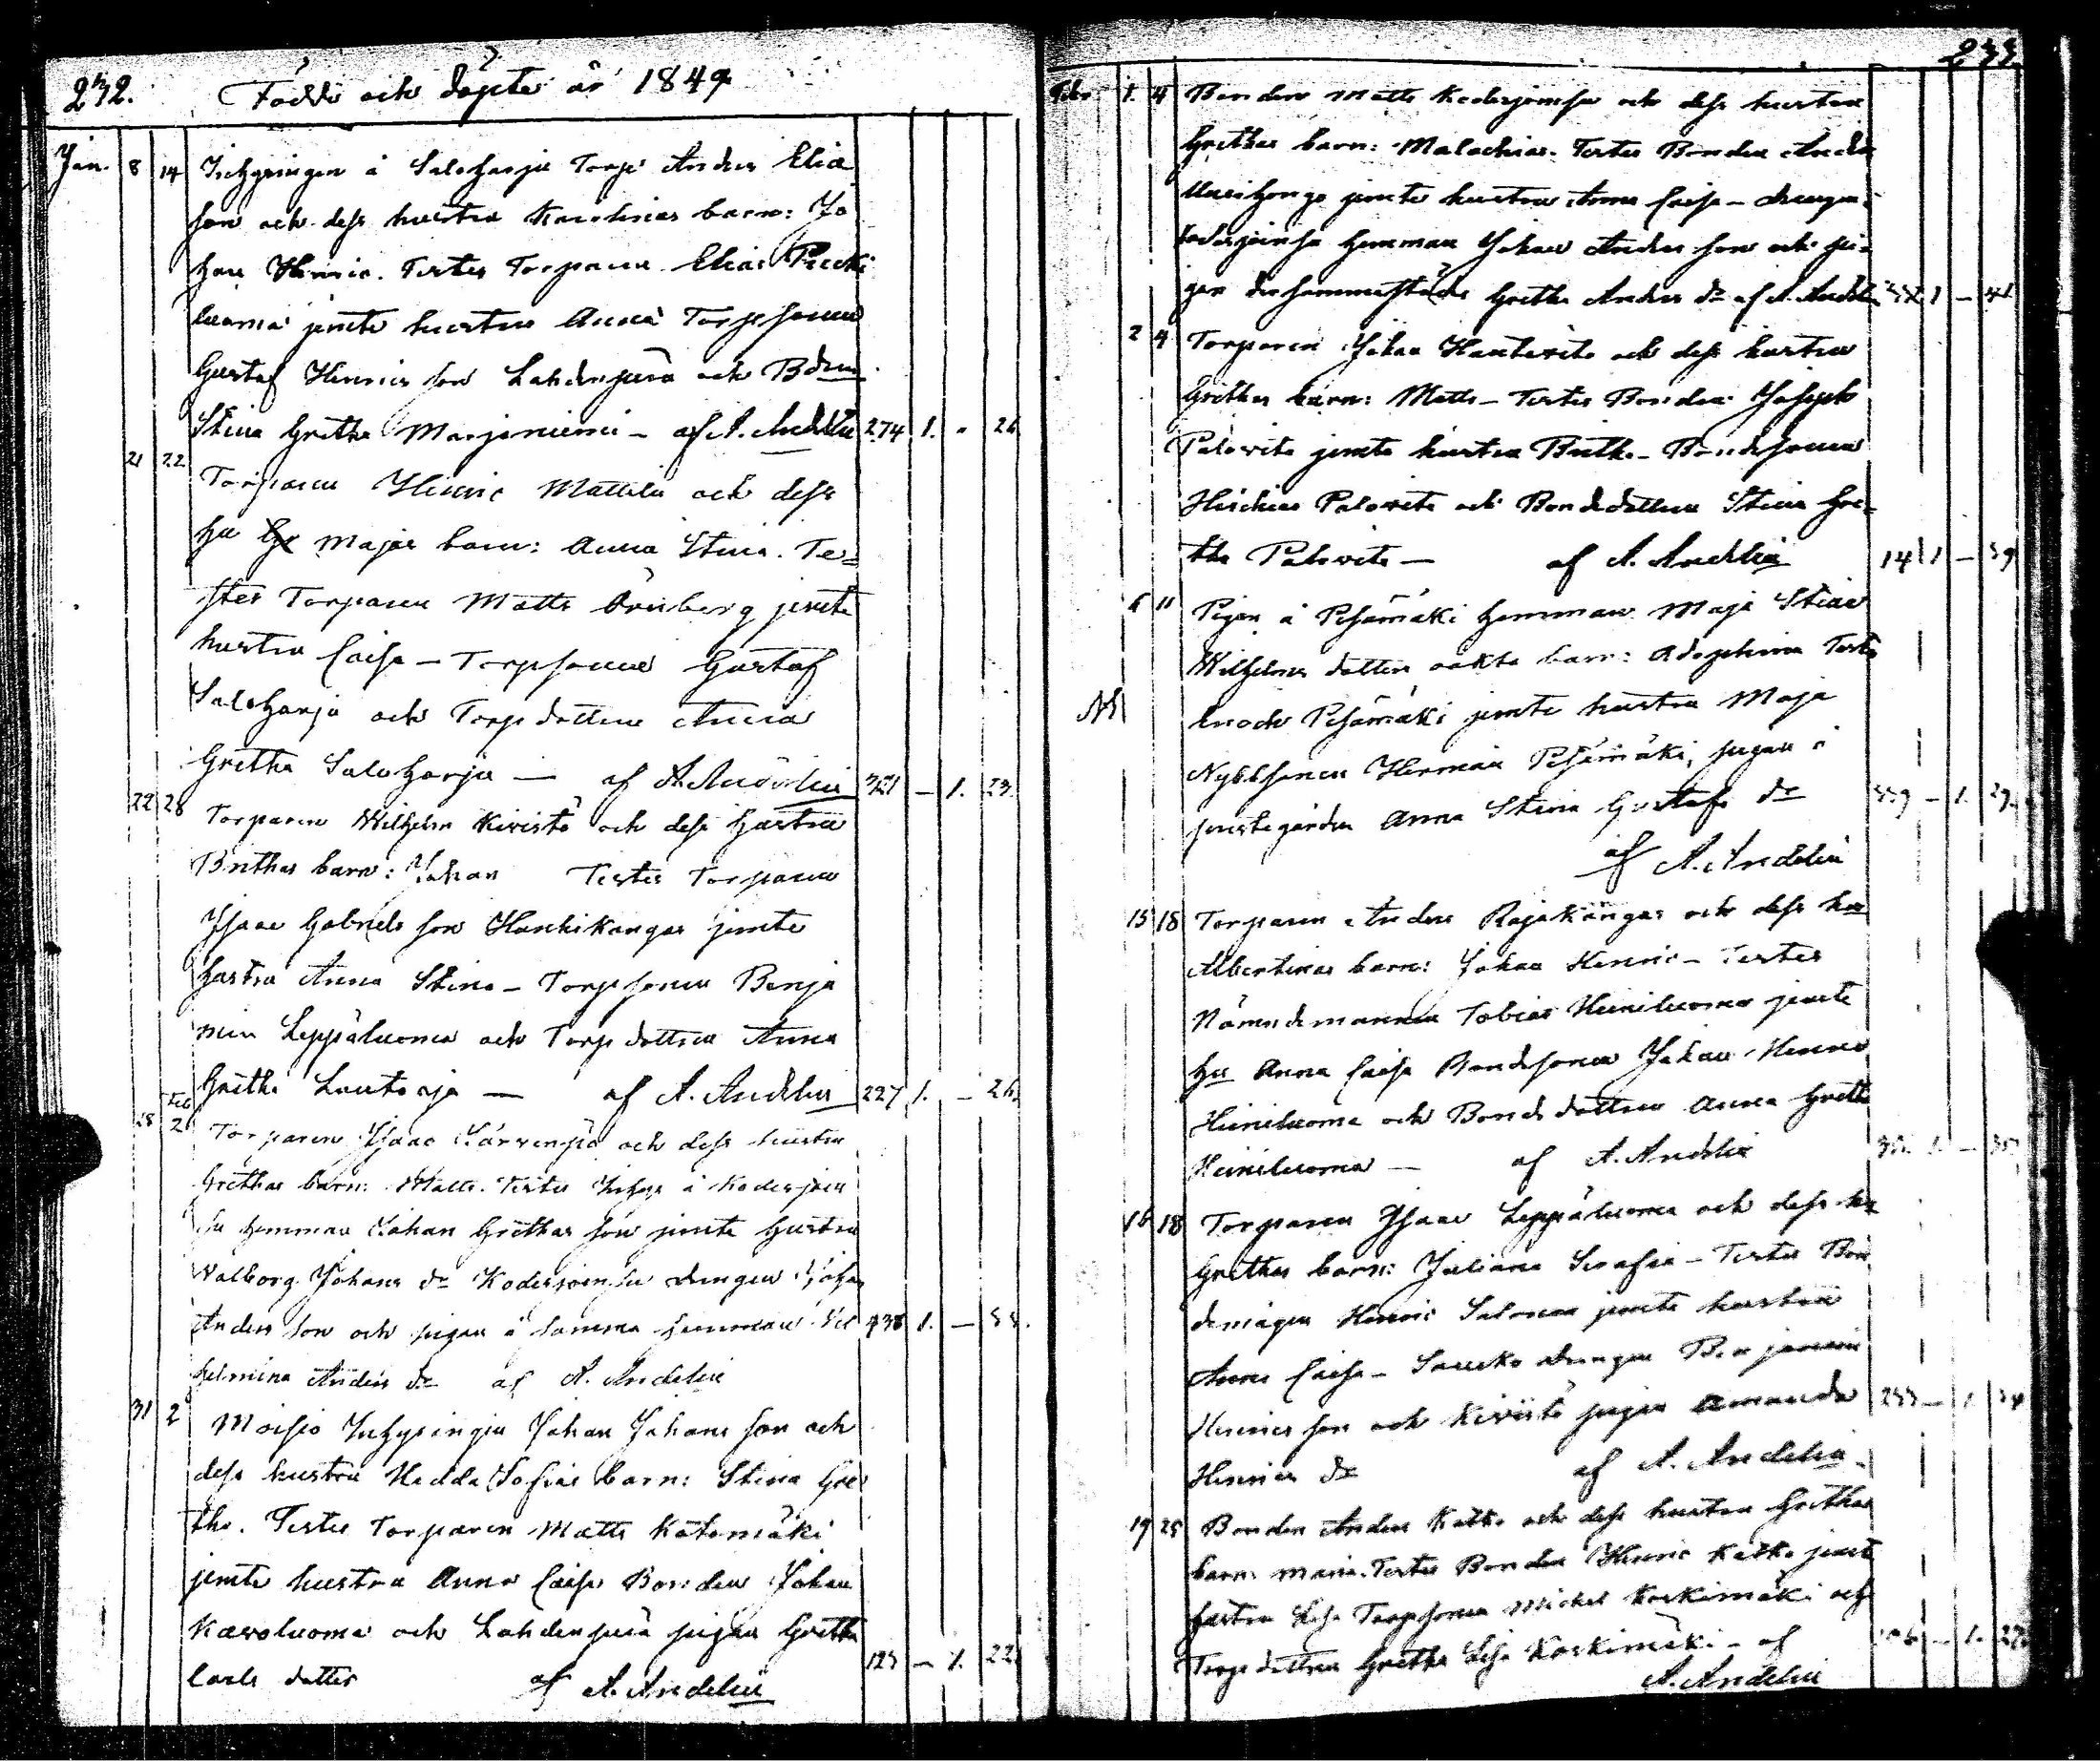 232. Födde och döpte år 1849
Jan. 8 14 Inhysingen å Saloharju Torp Anders Elia
son och dess hustru Karolinas barn: Jo
han Henric. Testes Torparen Elias
luoma jemte hustru Anna Torpsonen
Gustaf Henrics son Lahdenperä och Bdru
Stina Gretha Marjaniemi - af A. Andelin 274 1. " 26
21 22 Torparen Henric Mattila och dess
hu Majas barn: Anna Stina. Te=
stes Torparen Matts Örnberg jemte
hustru Caisa - Torpsonen Gustaf
Saloharju och Torpdottren Anna
Gretha Saloharju — af A. Andelin 321 — 1. 23.
22 28 Torparen Wilhelm Kivistö och dess hustru
Brithas barn: Johan Testes Torparen
Isaac Gabriels son Hanhikangas jemte
hustru Anna Stina - Torpsonen Benja
min Leppäluoma och Torpdottren Anna
Gretha Lautaoja — af A. Andelin 227 1. — 26.
28 Feb 2 Torparen Isaac Järvenpä och dess hustru
Grethas barn: Matts. Testes Inhys å Koder
hemman Johan Grethas son jemte hustru
Walborg Johans dr drengen Johan
Anders son och pigan å samma hemman Vil 438 1. —
helmina Anders dr af A. Andelin
31 2 Moisio Inhysingen Johan Johans son och
dess hustru Hedda Sofias barn: Stina Gre
tha. Testes Torparen Matts Katomäki
jemte hustru Anna Caisa Bonden Johan
Karvaluoma och Lahdenperä pigan Gretha
Carls dotter af A. Andelin 123 — 1. 22
233.
Febr. 1. 4 Bonden Matts och dess hustru
Grethas barn: Malachias. Testes Bonden Anders
jemte hustru Anna Caisa - drengen
hemman Johan Anders son och pi=
gan dersammastädes Gretha Anders dr af A. Andelin 1 —
2 4 Torparen Johan Hautvita och dess hustru
Grethas barn: Matts - Testes Bonden Joseph
Palovita jemte hustru Britha - Bondesonen
Palovita och Bondedottren Stina Gre=
tha Palovita — af A. Andelin 14 1 — 39
6 11 Pigan å Pesämäki hemman Maja Stina
Wilhelms dotters oäkta barn: Adophina Testes
NB
Enoch Pesämäki jemte hustru Maja
Herman Pesämäki, pigan i
prestegården Anna Stina Gustafs dr — 1. 29.
af A. Andelin
15 18 Torparen Anders Rajakangas och dess hu
Albertinas barn: Johan Henric - Testes
Nämndemannen Tobias Heiniluoma jemte
hu Anna Caisa Bondesonen Johan Henric
Heiniluoma och Bondedottren Anna Gretha
Heiniluoma — af A. Andelin 1. —
16 18 Torparen Isaac Leppäluoma och dess hu
Grethas barn: Juliana Serafia - Testes Bon
demågen Henric Salonen jemte hustru
Anna Caisa - Sauko drengen Benjamin
Henrics son och Kivistö pigan Amanda — 1. 34
Henrics dr af A. Andelin.
19 25 Bonden Anders Katko och dess hustru Grethas
barn: Maria. Testes Bonden Henric Katko jemte
hustru Lisa Torpsonen Michel Koskimäki och
Torpdottren Gretha Lisa Koskimäki - af — 1. 27
A. Andelin